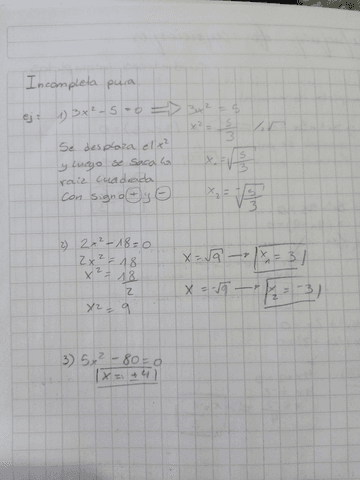 Incompleta pura
ej: 1) 3x² - 5 = 0 ⟹ 3x² = 5
x² = 5/3 /√
Se desplaza el x²
y luego se saca la
raiz cuadrada
con signo + y -
x₁ = √5/3
x₂ = -√5/3
2) 2x² - 18 = 0
2x² = 18
x² = 18/2
x² = 9
x = √9 → x₁ = 3
x = -√9 → x₂ = -3
3) 5x² - 80 = 0
x = ± 4